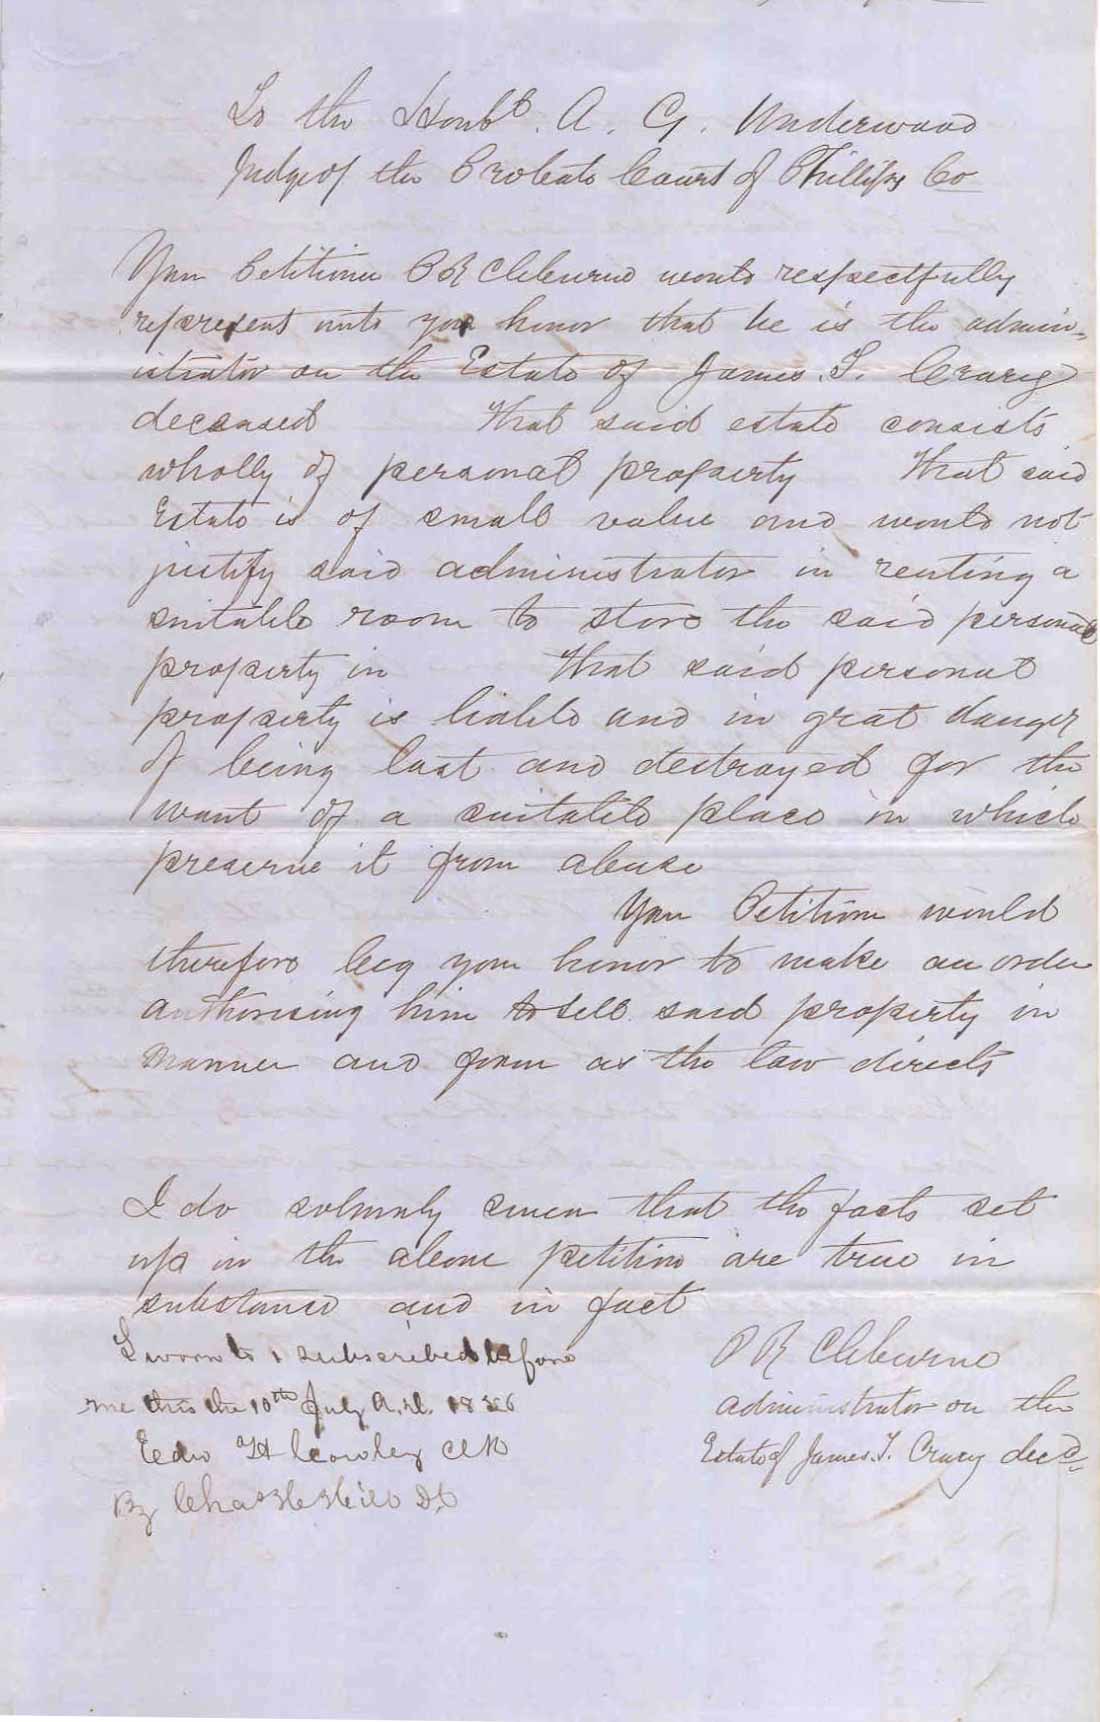 To the Honble. A. G. Underwood
Judge of the Probate Court of Phillips Co
Your Petitioner P R Cleburne would respectfully
represent unto your honor that he is the admin-
istrator on the Estate of James. T. Crary
deceased That said estate consists
wholly of personal property That said
Estate is of small value and would not
justify said administrator in renting a
suitable room to store the said personal
property in That said personal
property is liable and in grat danger
of being lost and destroyed for the
want of a suitable place in which
preserve it from abuse
Your Petition would
therefore beg your honor to make an order
authorising him to sell said property in
manner and form as the law directs
I do solumnly swear that the facts set
up in the above petition are true in
substance and in fact
Sworn to & subscribed before
me this the 10th July A.D. 1856
P R Cleburne
administrator on the
Estate of James. T. Crary decd
Edw H Cowley Clk
By Chas D.C